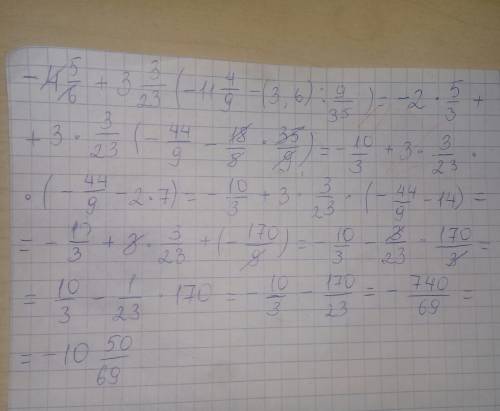 -4 5/6 + 3 3/23 (-11 4/9 - (3,6) : 9/35) = -2 · 5/3 +
+ 3 · 3/23 (- 44/9 - 18/8 · 35/9) = - 10/3 + 3 · 3/23 ·
· (- 44/9 - 2·7) = - 10/3 + 3 · 3/23 · (- 44/9 - 14) =
= - 10/3 + 3 · 3/23 + (- 170/9) = - 10/3 - 3/23 · 170/3 =
= 10/3 - 1/23 · 170 = - 10/3 - 170/23 = - 740/69 =
= -10 50/69